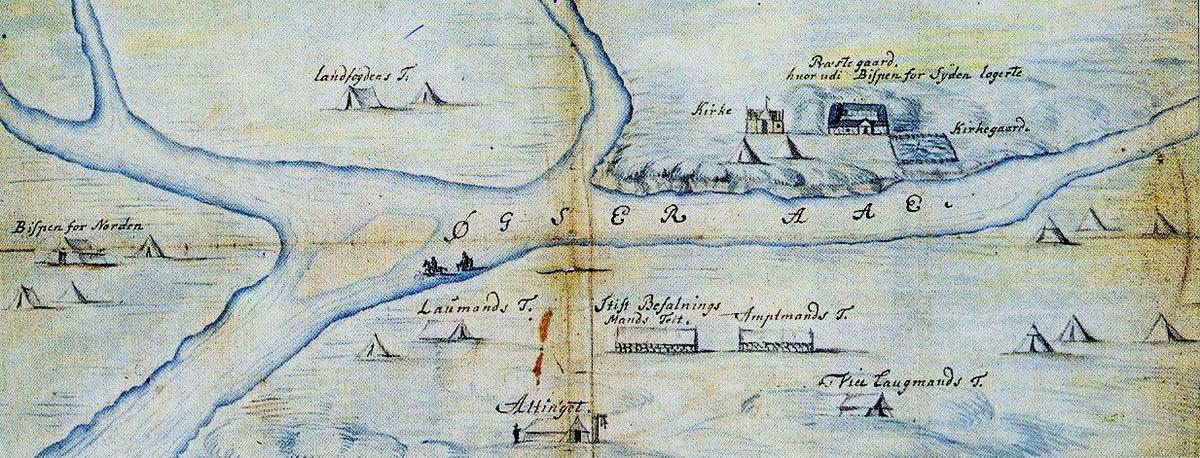 Landfogdens T.
Præste gaard.
hvor udi Bispen for Syden logerte
Kirke
Kirkegaard.
Bispen for Norden
ØGSER AAE.
Laumands T.
Stift Befalnings
Mands Telt.
Amptmands T.
Vice Laugmands T.
Altinget.